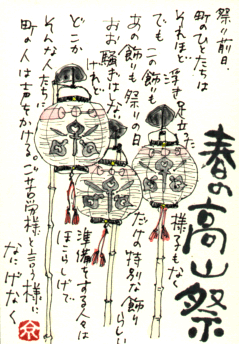 春の高山祭
祭り前日、
町のひとたちは
それほど 浮き足立った
様子もなく
でも この飾りも
あの 飾りも 祭りの日
だけの 特別な 飾りらしい
おお騒ぎはない
けれど
準備をする人々は
どこか
ほこらしげで
そんな人たちに
町の人は声をかける。ご苦労様と言う様に
なにげなく